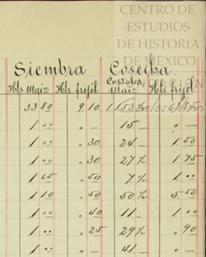 CENTRO DE
ESTUDIOS
DE HISTORIA
DE MEXICO
Siembra Cosecha
Hls Maiz Hls. frijol Costales Maiz Hls frijol
33 80 9 10
1 00 " — 15 — " —
1 00 " 30 24 — 1 50
1 00 " 30 27 ½ 1 75
1 65 " 50 7 ½ 1 00
1 10 " 50 50 ½ 5 50
1 00 " 40 11 — " —
1 00 " 25 29 ½ " 90
1 00 " — 41 — " —